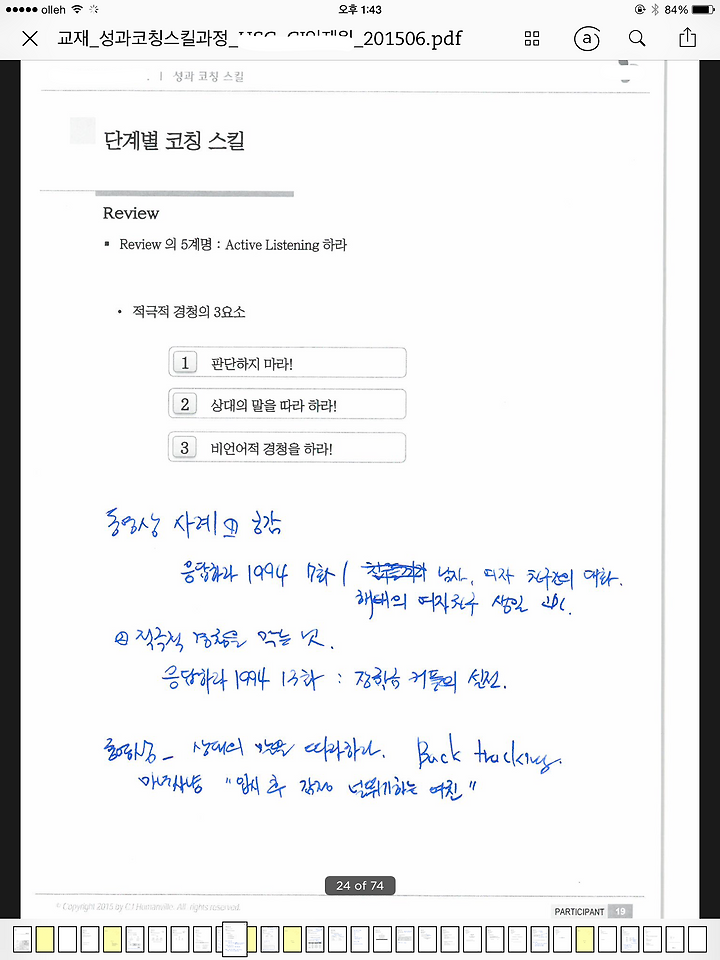 olleh 오후 1:43 84%
교재_성과코칭스킬과정_ _201506.pdf
. | 성과 코칭 스킬
단계별 코칭 스킬
Review
▪ Review 의 5계명 : Active Listening 하라
• 적극적 경청의 3요소
1 판단하지 마라!
2 상대의 말을 따라 하라!
3 비언어적 경청을 하라!
동영상 사례 ① 공감
응답하라 1994 7화 / 남자, 여자 친구간의 대화.
해태의 여자친구 생일
② 적극적 경청을 막는 것.
응답하라 1994 13화 : 장학금 커플의 실전.
동영상 _ 상대의 말을 따라하라. Back tracking.
마녀사냥 " 감정 널뛰기하는 여친"
24 of 74
© Copyright 2015 by All rights reserved.
PARTICIPANT 19